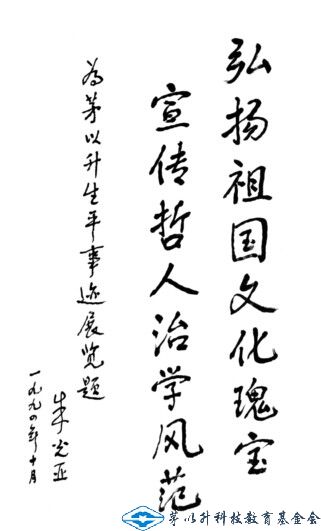 弘扬祖国文化瑰宝
宣传哲人治学风范
为茅以升生平事迹展览题
朱光亚
一九九四年十月
茅以升科技教育基金会